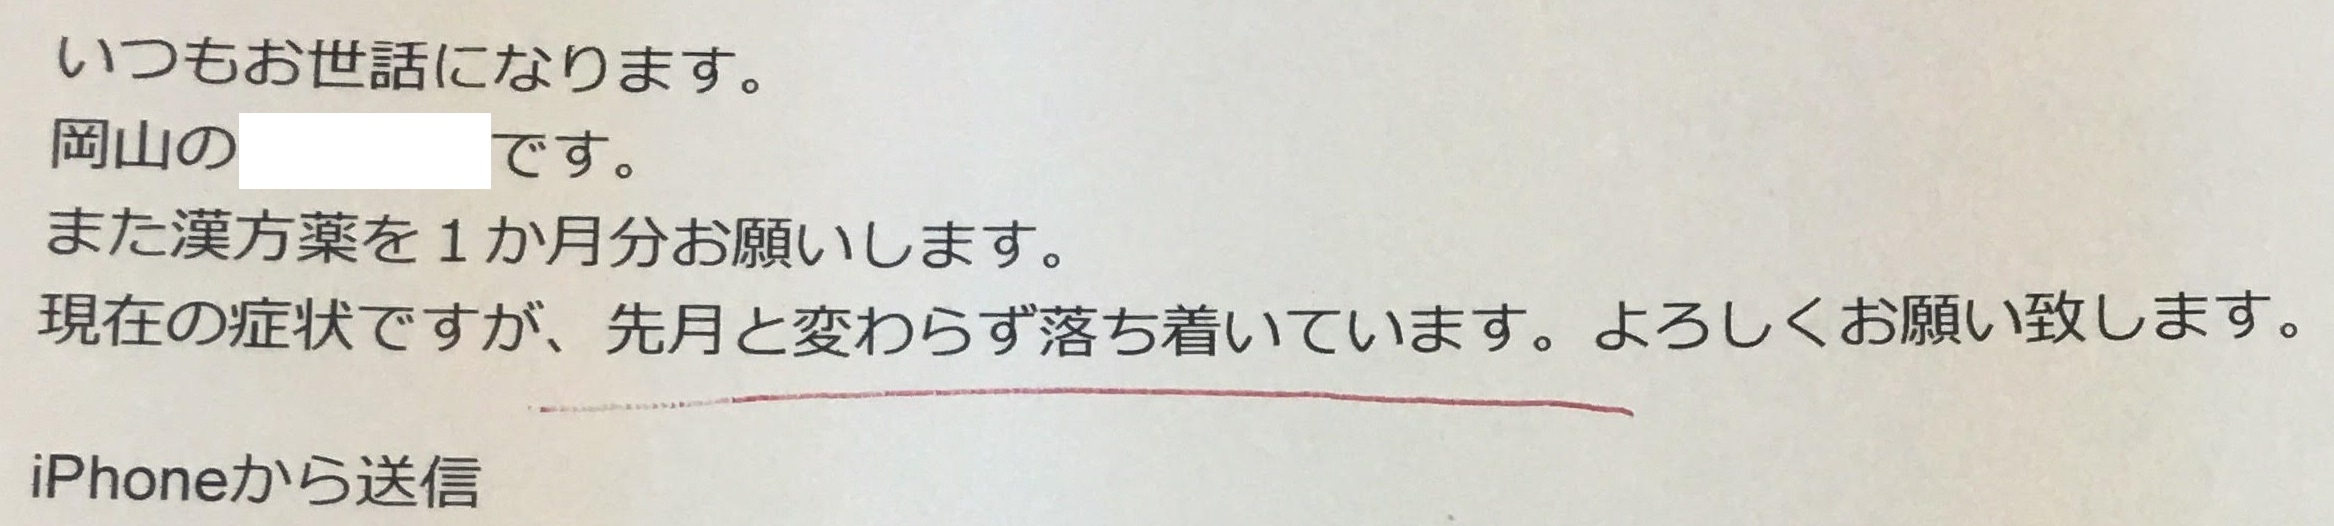 いつもお世話になります。
岡山の　　　　です。
また漢方薬を１か月分お願いします。
現在の症状ですが、先月と変わらず落ち着いています。よろしくお願い致します。
iPhoneから送信